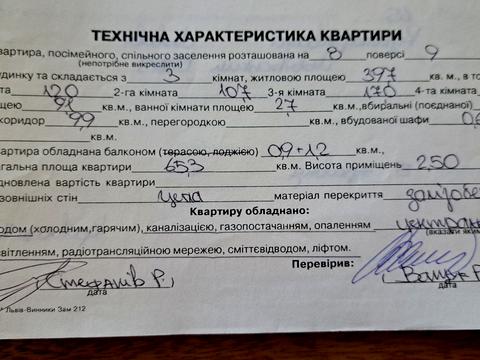 ТЕХНІЧНА ХАРАКТЕРИСТИКА КВАРТИРИ
вартира, посімейного, спільного заселення розташована на 8 поверсі 9
(непотрібне викреслити)
удинку та складається з 3 кімнат, житловою площею 39,7 кв. м., в то
та 12,0 2-га кімната 10,7 3-я кімната 17,0 4-та кімната
щею кв.м., ванної кімнати площею 2,7 кв.м.,вбиральні (поєднаної)
коридор 9,9 кв.м., перегородкою кв.м., вбудованої шафи 0,6
кв.м.
вартира обладнана балконом (терасою, лоджією) 0,9+1,2 кв.м.,
гальна площа квартири 65,3 кв.м. Висота приміщень 2,50
дновлена вартість квартири
зовнішніх стін цегла матеріал перекриття залізобе
Квартиру обладнано:
одом (холодним,гарячим), каналізацією, газопостачанням, опаленням центран
(вказати яким
світленням, радіотрансляційною мережею, сміттєвідводом, ліфтом.
Перевірив:
Стефанів Р.
дата дата
Львів-Винники Зам 212